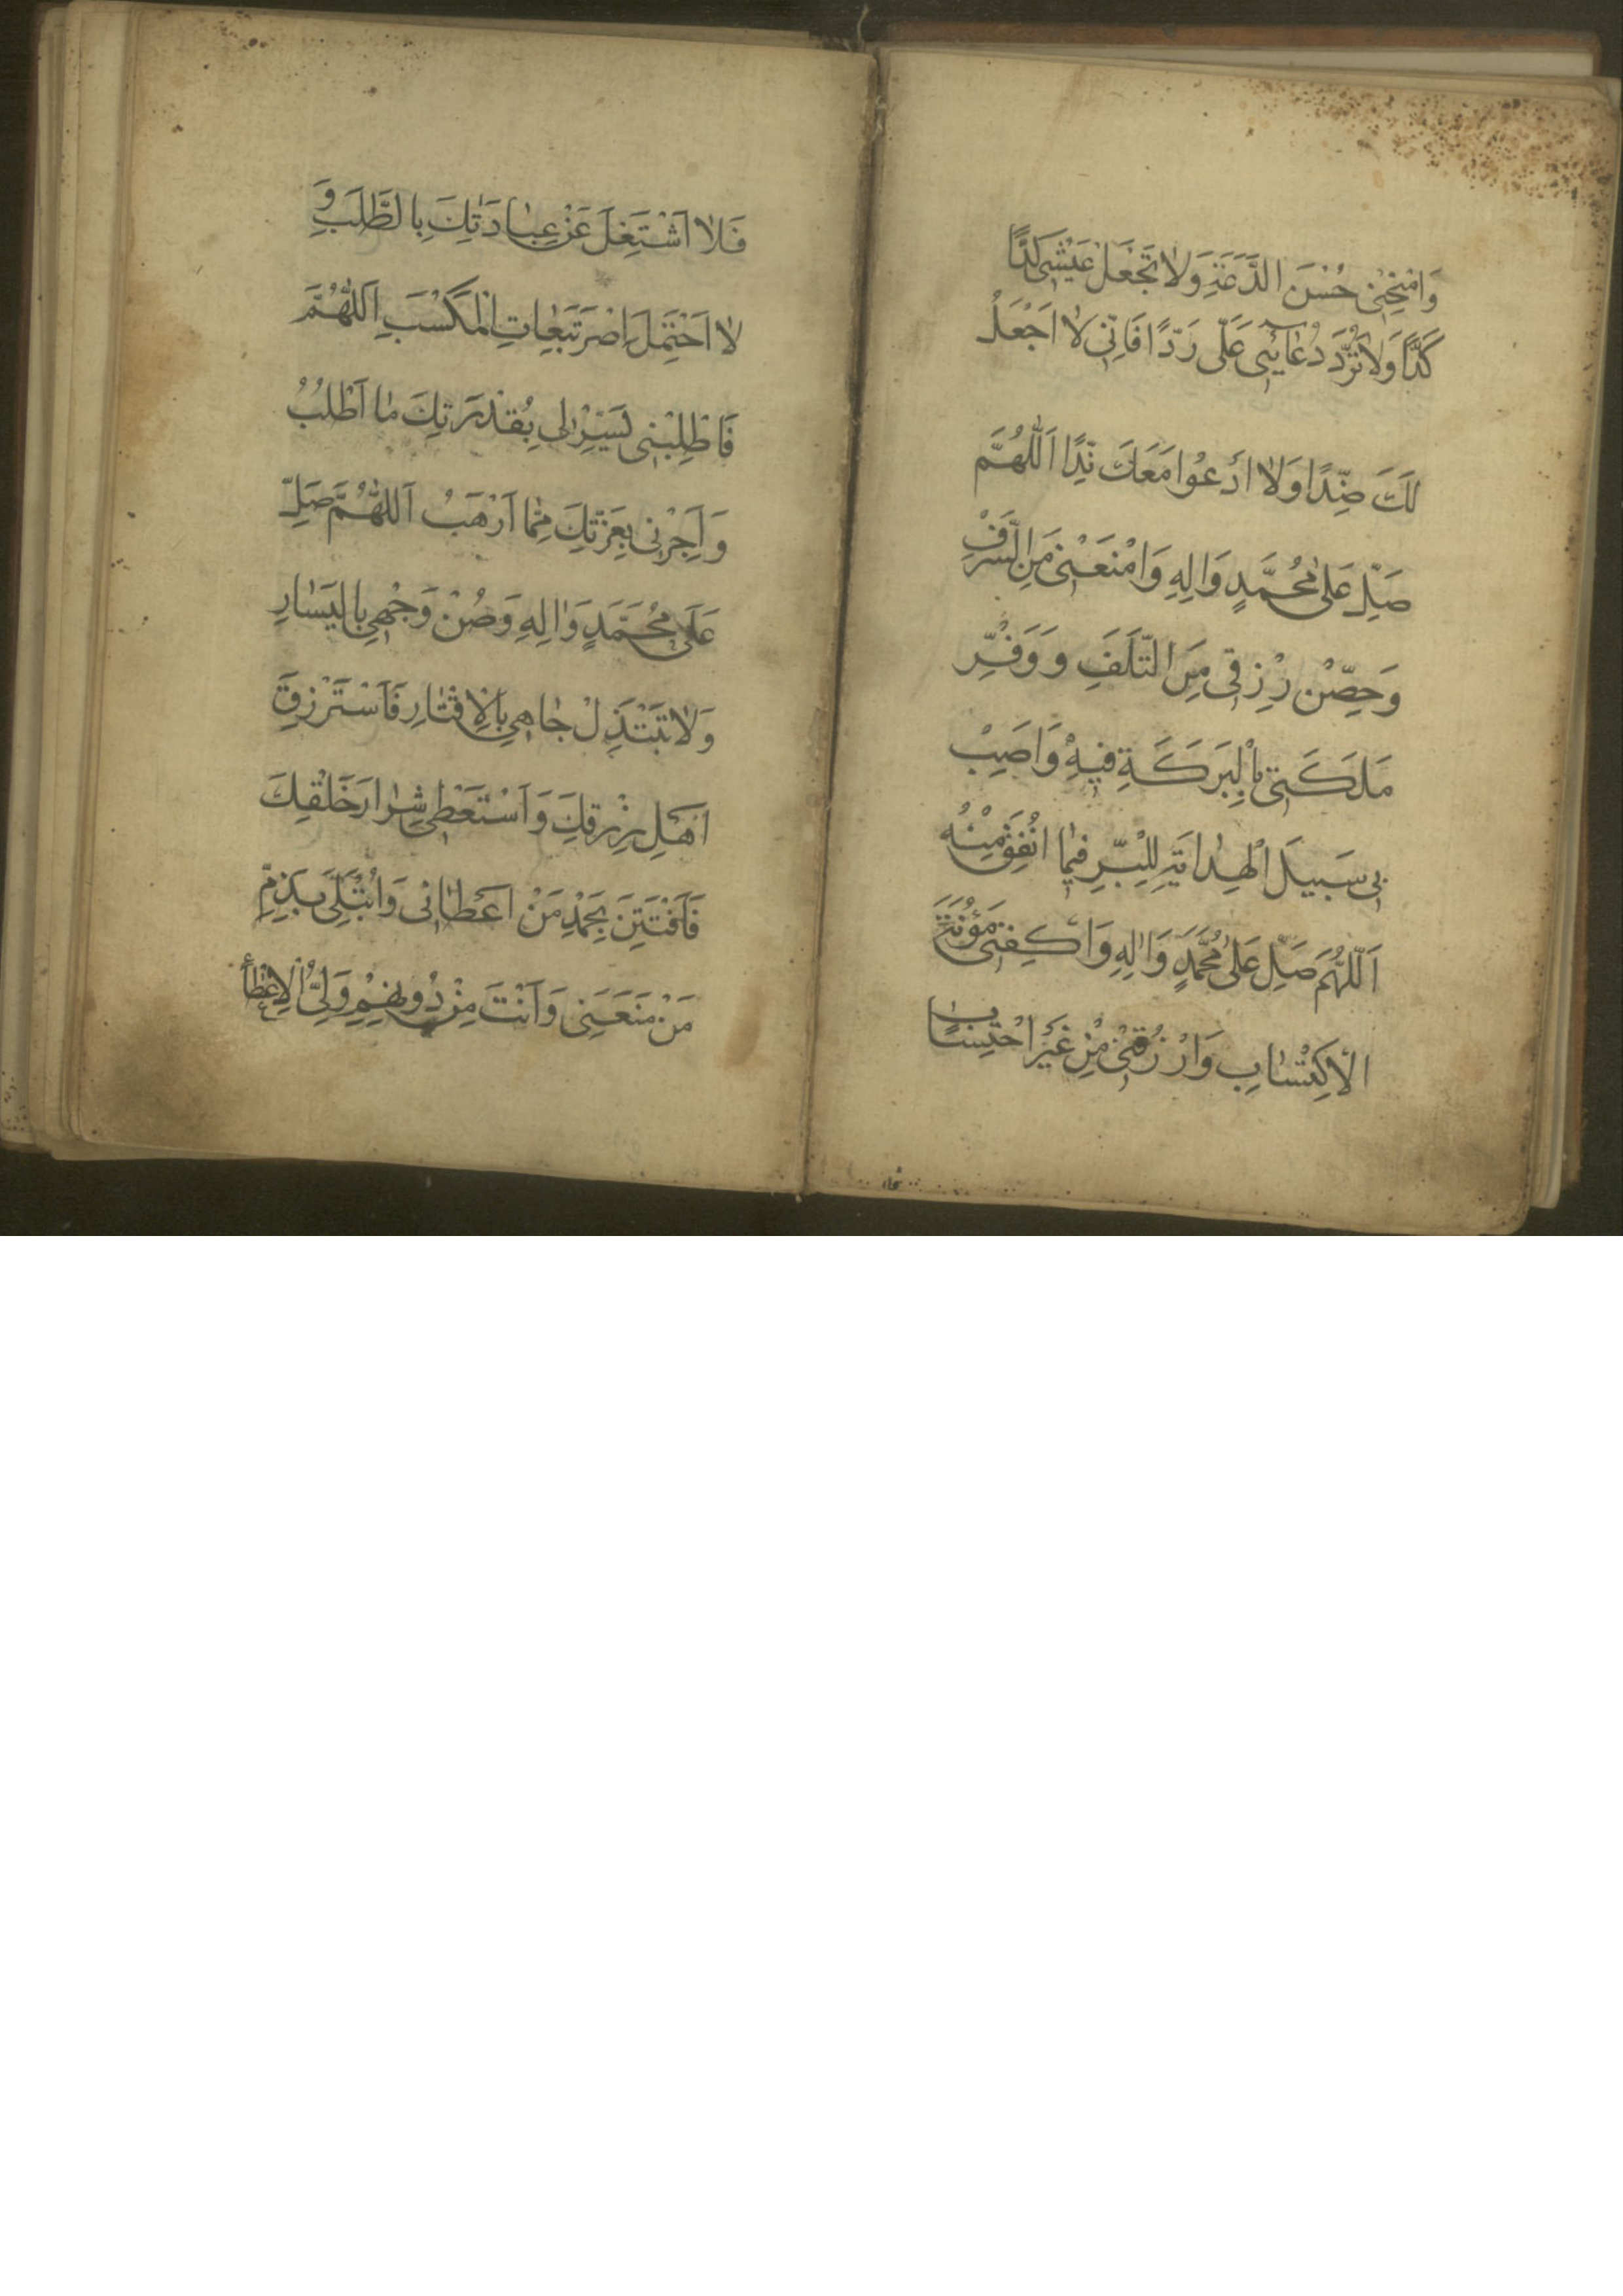 وَامْنَحْنِى حُسْنَ الدَّعَةِ وَلَا تَجْعَلْ عَيْشِى كَدًّا
كَدًّا وَلَا تَرُدَّ دُعَائِى عَلَىَّ رَدًّا فَاِنِّى لَا اَجْعَلُ
لَكَ ضِدًّا وَلَا اَدْعُوا مَعَكَ نِدًّا اَللّٰهُمَّ
صَلِّ عَلٰى مُحَمَّدٍ وَاٰلِهِ وَامْنَعْنِى مِنَ السَّرَفِ
وَحَصِّنْ رِزْقِى مِنَ التَّلَفِ وَوَفِّرْ
مَلَكَتِى بِالْبَرَكَةِ فِيهِ وَاَصِبْ
بِى سَبِيلَ الْهِدَايَةِ لِلْبِرِّ فِيمَا اُنْفِقُ مِنْهُ
اَللّٰهُمَّ صَلِّ عَلٰى مُحَمَّدٍ وَاٰلِهِ وَاكْفِنِى مَؤُنَةَ
الْاِكْتِسَابِ وَارْزُقْنِى مِنْ غَيْرِ احْتِسَابٍ
فَلَا اَشْتَغِلَ عَنْ عِبَادَتِكَ بِالطَّلَبِ وَ
لَا اَحْتَمِلَ اِصْرَ تَبِعَاتِ الْمَكْسَبِ اَللّٰهُمَّ
فَاطْلِبْنِى يَسِّرْ لِى بِقُدْرَتِكَ مَا اَطْلُبُ
وَاَجِرْنِى بِعِزَّتِكَ مِمَّا اَرْهَبُ اَللّٰهُمَّ صَلِّ
عَلٰى مُحَمَّدٍ وَاٰلِهِ وَصُنْ وَجْهِى بِالْيَسَارِ
وَلَا تَبْتَذِلْ جَاهِى بِالْاِقْتَارِ فَاَسْتَرْزِقَ
اَهْلَ رِزْقِكَ وَاَسْتَعْطِىَ شِرَارَ خَلْقِكَ
فَاَفْتَتِنَ بِحَمْدِ مَنْ اَعْطَانِى وَاُبْتَلٰى بِذَمِّ
مَنْ مَنَعَنِى وَاَنْتَ مِنْ دُونِهِمْ وَلِىُّ الْاِعْطَاءِ